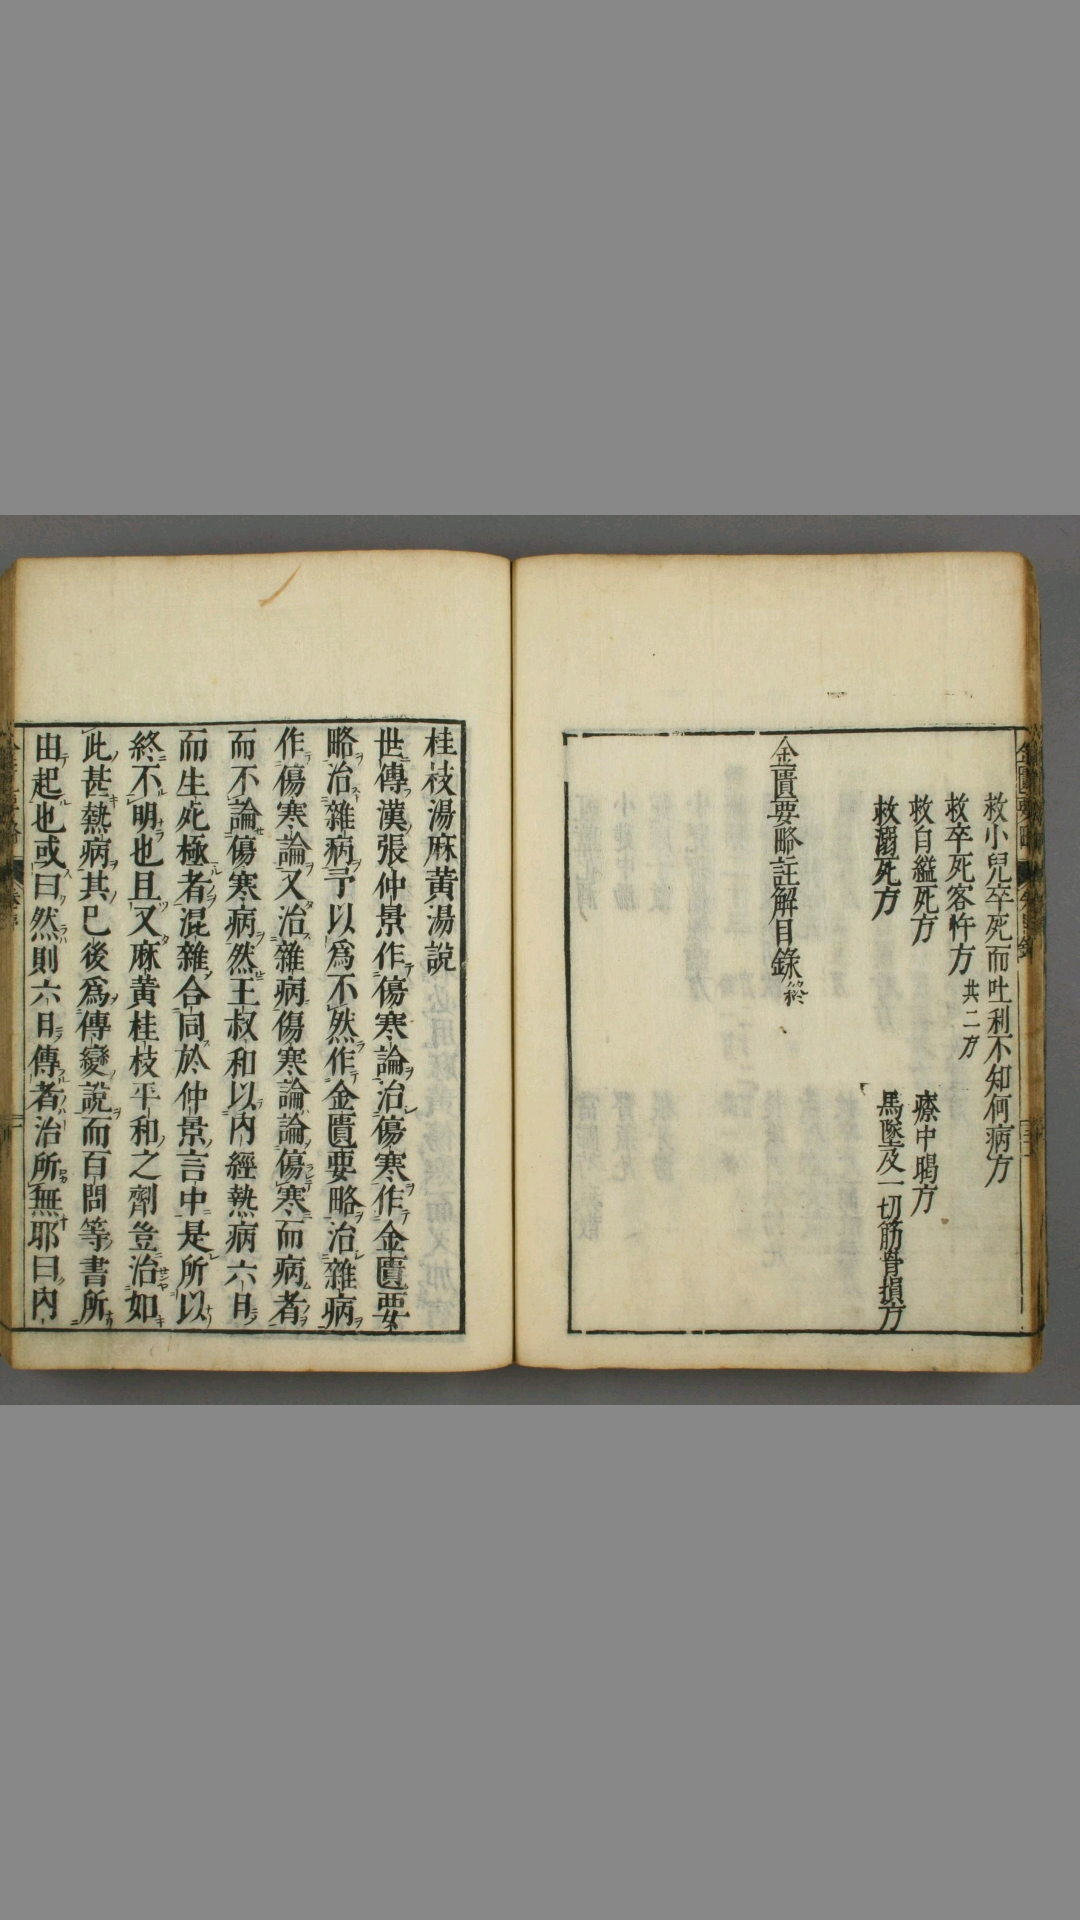 救小兒卒死而吐利不知何病方
救卒死客忤方共二方
救自縊死方　療中暍方
救溺死方　馬墜及一切筋骨損方
金匱要略註解目錄終
桂枝湯麻黃湯說
世傳漢張仲景作傷寒論治傷寒作金匱要
略治雜病予以爲不然作金匱要略治雜病
作傷寒論又治雜病傷寒論論傷寒而病者
而不論傷寒病然王叔和以內經熱病六日
而生死極者混雜合同於仲景言中是所以
終不明也且又麻黃桂枝平和之劑豈治如
此甚熱病其已後爲傳變說而百問等書所
由起也或曰然則六日傳者治所無耶曰內